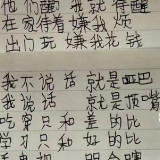 他们醒 我就得醒
在家待着嫌我烦
出门玩 嫌我花钱
我不说话 就是哑巴
我说话 就是顶嘴
吃穿只和差的比
学习只和好的比